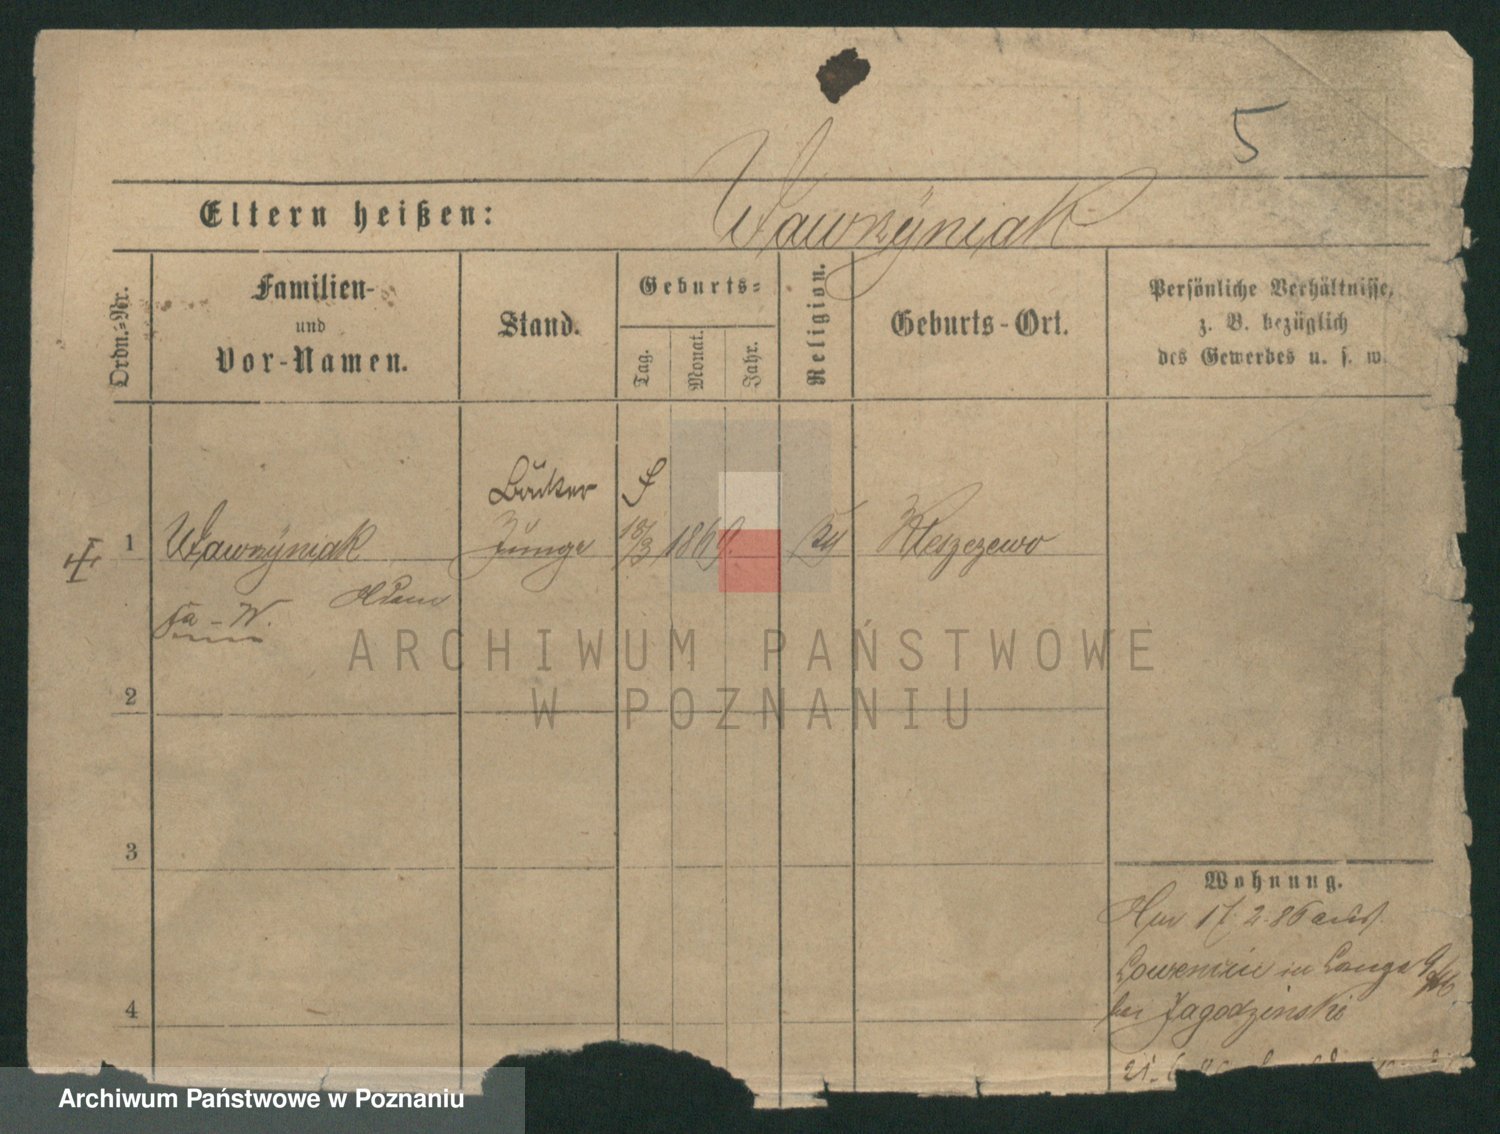 5
Eltern heißen: Wawrzÿniak
Ordn.=Nr.
Familien-
und
Vor-Namen.
Stand.
Geburts=
Tag.
Monat.
Jahr.
Religion.
Geburts-Ort.
Persönliche Verhältnisse,
z. B. bezüglich
des Gewerbes u. s. w.
Bäcker
1 Wawrzÿniak Junge 18/3 1869. Kleszczewo
2
3
4
Wohnung.
17. 2. 86
in
Jagodzinski
21. 6.
ARCHIWUM PAŃSTWOWE
W POZNANIU
Archiwum Państwowe w Poznaniu